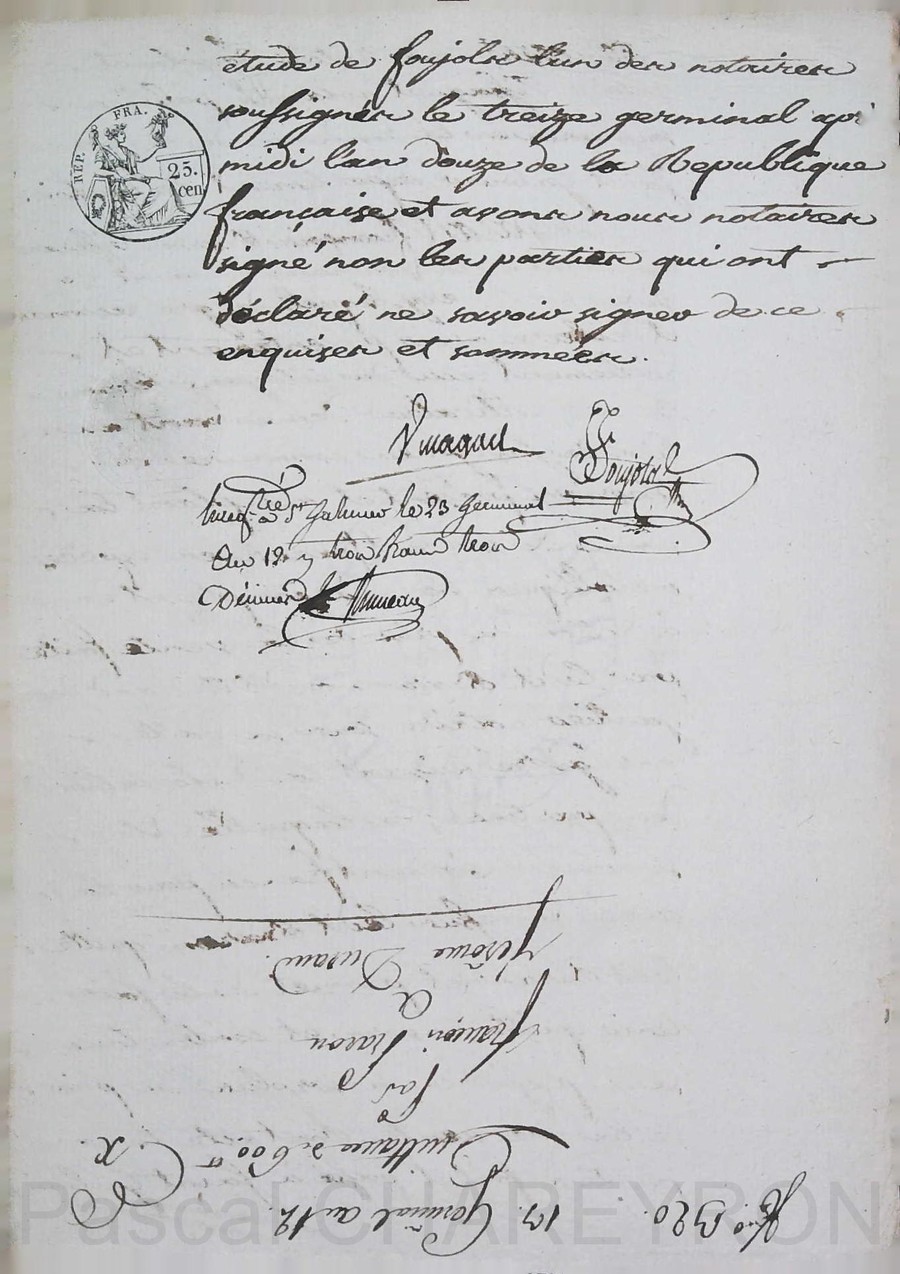 REP. FRA.
25.
cen
étude de foujols l'un des notaires
soussignés le treize germinal apr
midi l'an douze de la Republique
française et avons nous notaires
signé non les parties qui ont
déclaré ne savoir signer de ce
enquises et sommées.
Foujols
le 23 Germinal
an 12 trois francs trois
Décimes
No. 320. 13. Germinal an 12.
Quittance de 600
Par
françois
a
Jérôme Durand.
Pascal CHAREYRON